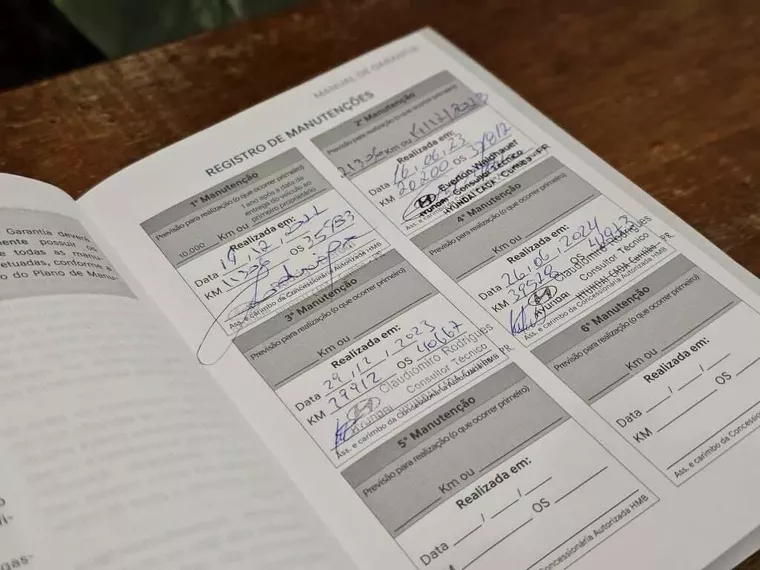 MANUAL DE GARANTIA
REGISTRO DE MANUTENÇÕES
1ª Manutenção
Previsão para realização (o que ocorrer primeiro)
1 ano após a data da
entrega do veículo ao
primeiro proprietário
10.000 Km ou
Realizada em:
Data
KM OS 35983
Ass. e carimbo da Concessionária Autorizada HMB
2ª Manutenção
Previsão para realização (o que ocorrer primeiro)
Km ou
Realizada em:
Data 16.06.23
KM 20200 OS
Everton Walchauer
Consultor Técnico
HYUNDAI
3ª Manutenção
Previsão para realização (o que ocorrer primeiro)
Km ou
Realizada em:
Data 29/12/2023
KM 29912 OS 40667
Claudiomiro Rodrigues
HYUNDAI Consultor Técnico
Ass. e carimbo da Concessionária Autorizada HMB
4ª Manutenção
Previsão para realização (o que ocorrer primeiro)
Km ou
Realizada em:
Data 26/06/2024
KM 39528 OS
Claudiomiro Rodrigues
HYUNDAI Consultor Técnico
Ass. e carimbo da Concessionária Autorizada HMB
5ª Manutenção
Previsão para realização (o que ocorrer primeiro)
Km ou
Realizada em:
Data / /
KM OS
Concessionária Autorizada HMB
6ª Manutenção
Previsão para realização (o que ocorrer primeiro)
Km ou
Realizada em:
Data / /
KM OS
Ass. e carimbo da Concessio
Garantia deverá
mente possuir os
e todas as manu-
etuadas, conforme a
o do Plano de Manu-